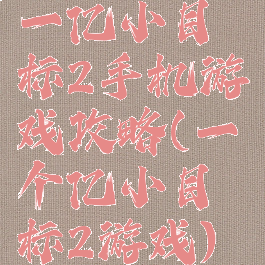 一亿小目
标2手机游
戏攻略(一
个亿小目
标2游戏)